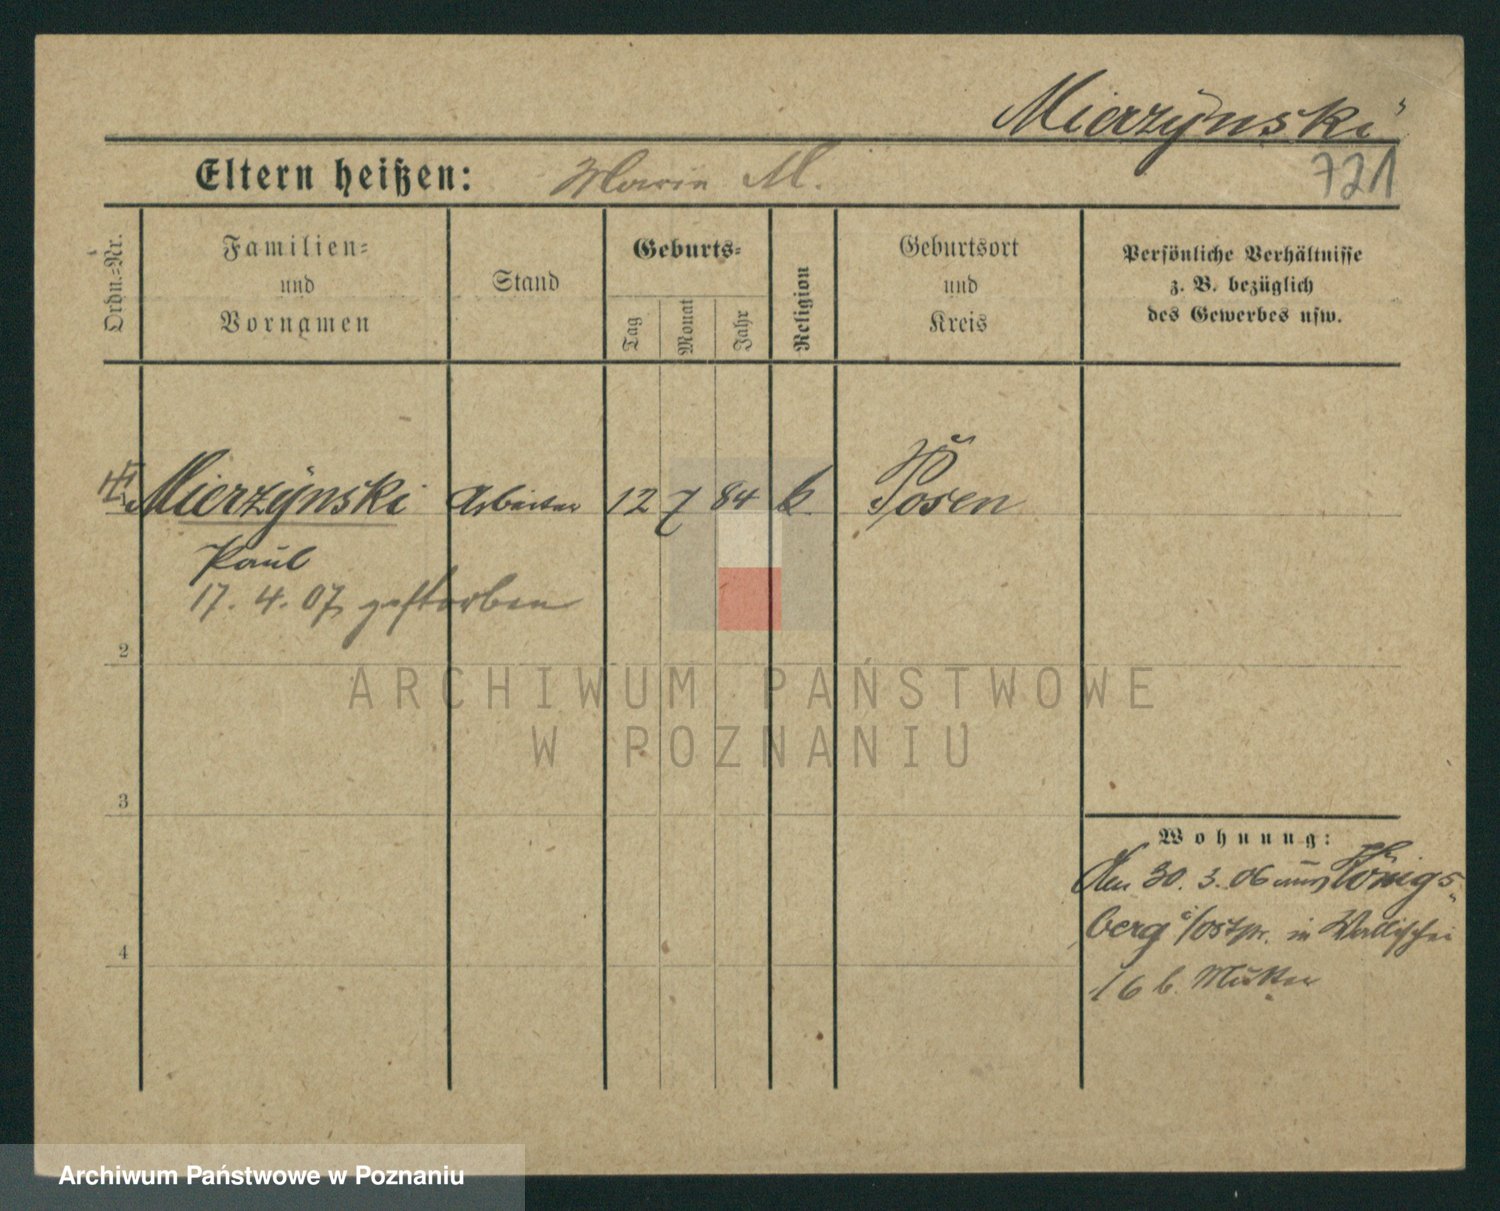 Mierzynski
721
Eltern heißen: Marie M.
Ordn.-Nr.
Familien-
und
Vornamen
Stand
Geburts-
Tag
Monat
Jahr
Religion
Geburtsort
und
Kreis
Persönliche Verhältnisse
z. B. bezüglich
des Gewerbes usw.
Mierzynski Arbeiter 12 7 84 k. Posen
Paul
17. 4. 07 gestorben
2
ARCHIWUM PAŃSTWOWE
W POZNANIU
3
4
Wohnung:
Den 30. 3. 06 aus Königs-
berg i/Ostpr. in Wallischei
16 b. Mutter
Archiwum Państwowe w Poznaniu